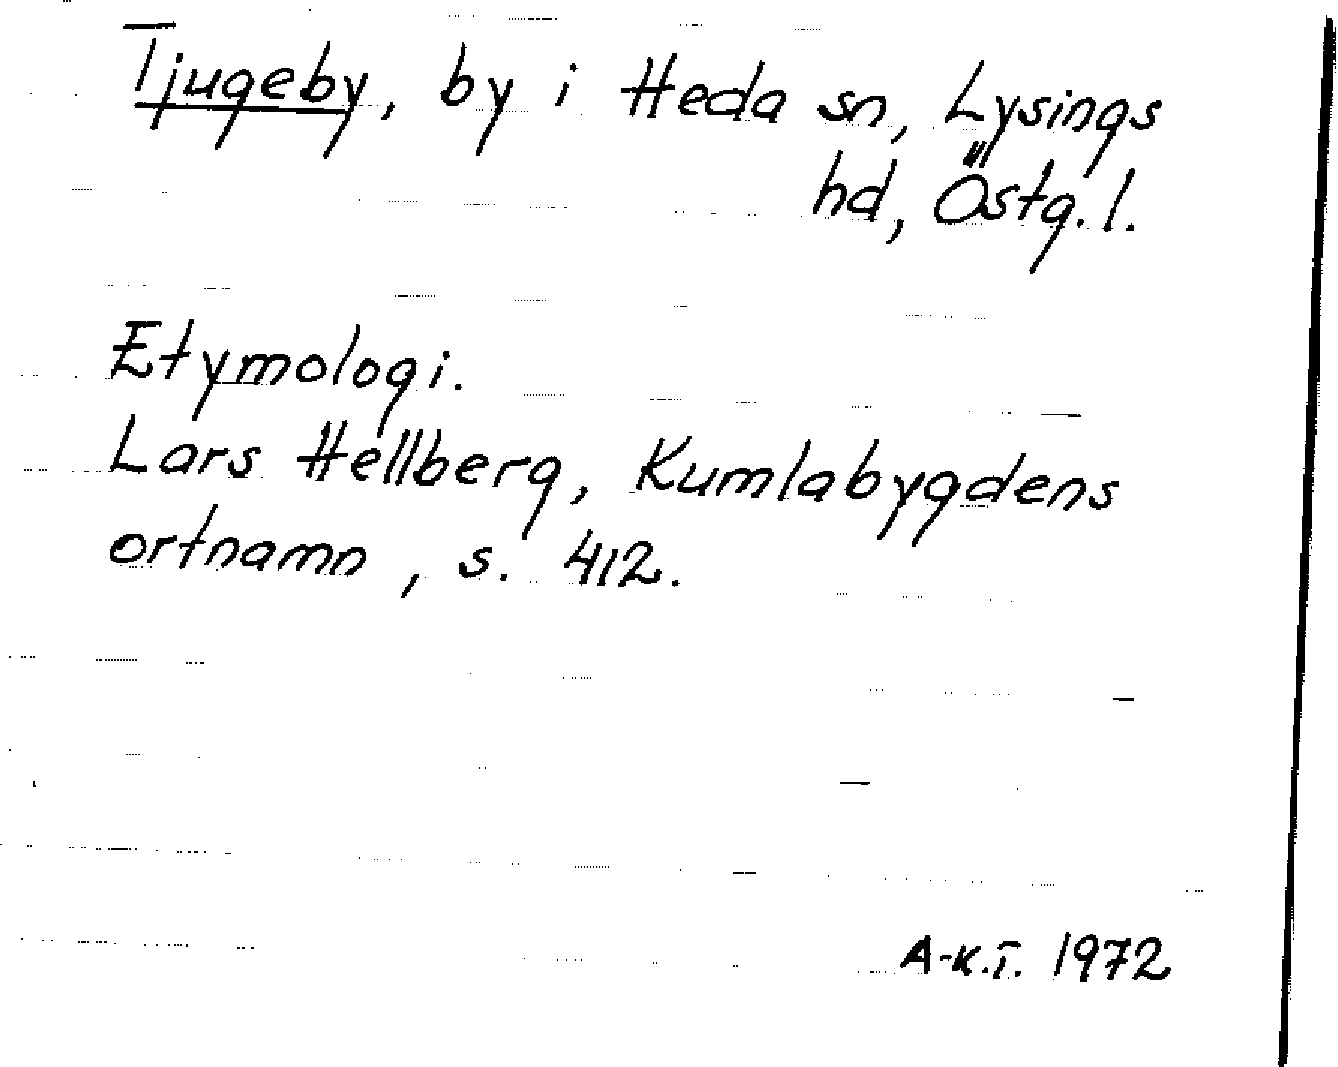 Tjugeby, by i Heda sn, Lysings
hd, Östg. l.
Etymologi.
Lars Hellberg, Kumlabygdens
ortnamn, s. 412.
A-K.T. 1972